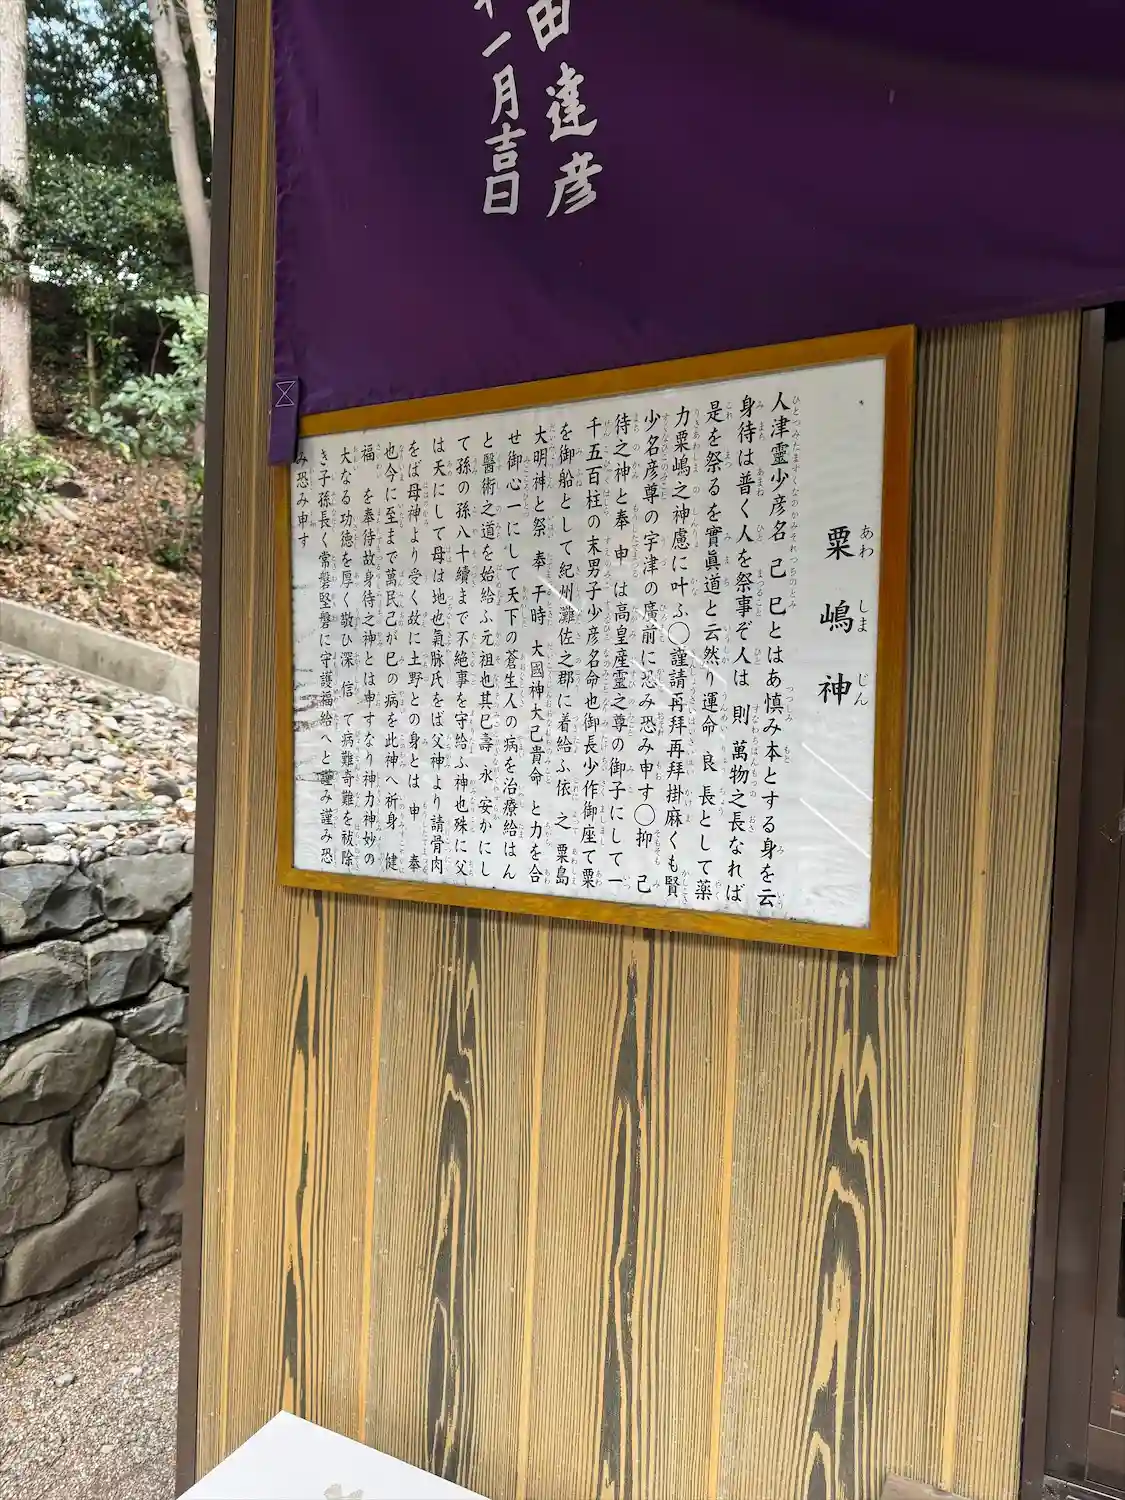 田達彦
一月吉日
粟嶋神
あわしまじん
人津靈少彦名己巳とはあ慎み本とする身を云
身待は普く人を祭事ぞ人は則萬物之長なれば
是を祭るを實眞道と云然り運命良長として薬
力粟嶋之神慮に叶ふ〇謹請再拜再拜掛麻くも賢
少名彦尊の宇津の廣前に恐み恐み申す〇抑己
待之神と奉申は高皇産靈之尊の御子にして一
千五百柱の末男子少彦名命也御長少作御座て粟
を御船として紀州灘佐之郡に着給ふ依之粟島
大明神と祭奉干時大國神大己貴命と力を合
せ御心一にして天下の蒼生人の病を治療給はん
と醫術之道を始給ふ元祖也其巳壽永安かにし
て孫の孫八十續まで不絶事を守給ふ神也殊に父
は天にして母は地也氣脉氏をば父神より請骨肉
をば母神より受く故に土野との身とは申奉
也今に至まで萬民己が巳の病を此神へ祈身健
福を奉待故身待之神とは申すなり神力神妙の
大なる功徳を厚く敬ひ深信て病難奇難を祓除
き子孫長く常磐堅磐に守護福給へと謹み謹み恐
み恐み申す